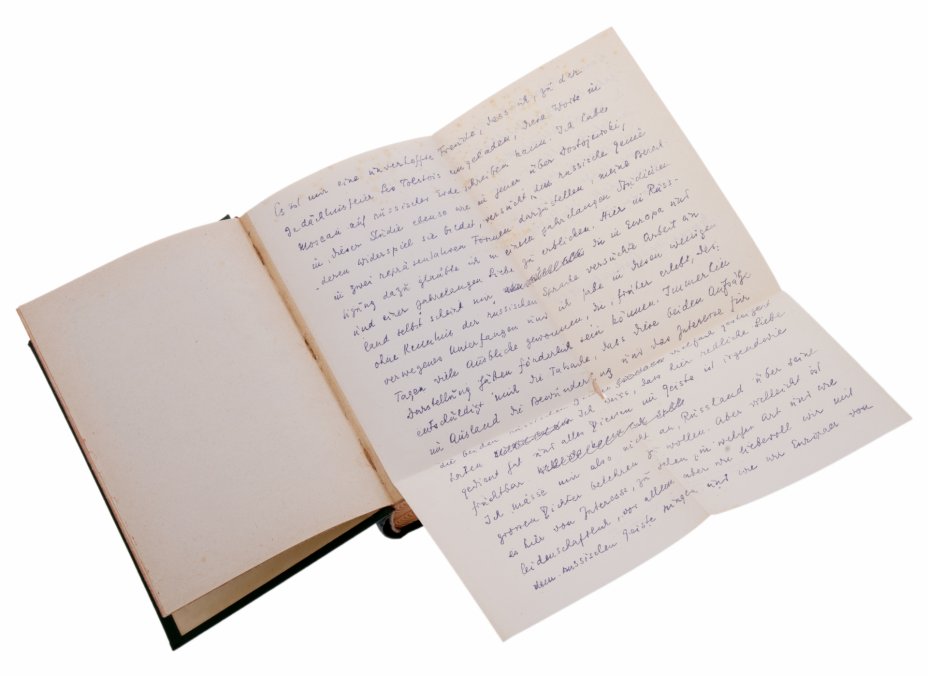 Es ist mir eine unverhoffte Freude, dass ich, zu der
Gedächtnisfeier Leo Tolstois eingeladen, diese Worte in
Moskau auf russischer Erde schreiben kann. Ich habe
in dieser Studie ebenso wie in jener über Dostojewski,
deren Widerspiel sie bildet, versucht das russische Genie
in zwei repräsentativen Formen darzustellen, meine Berech-
tigung dazu glaubte ich in einem jahrelangen Studium
und einer jahrelangen Liebe zu erblicken. Hier in Russ-
land selbst scheint mir, die in Europa und
ohne Kenntnis der russischen Sprache versuchte Arbeit ein
verwegenes Unterfangen und ich habe in diesen wenigen
Tagen viele Ausblicke gewonnen, die, früher erlebt, der
Darstellung hätten förderlich sein können. Immerhin
entschuldigt mich die Tatsache, dass diese beiden Aufsätze
im Ausland die Bewunderung und das Interesse für
die beiden russischen vielfach gesteigert
haben. Ich weiss, dass hier redliche Liebe
gedient hat und alles Dienen im Geiste ist irgendwie
fruchtbar
Ich masse mir also nicht an, Russland über seine
grossen Dichter belehren zu wollen. Aber vielleicht ist
es hier von Interesse, zu sehen, in welcher Art und wie
leidenschaftlich, vor allem aber wie liebevoll wir mit
dem russischen Geiste ringen und wie wir Europäer von